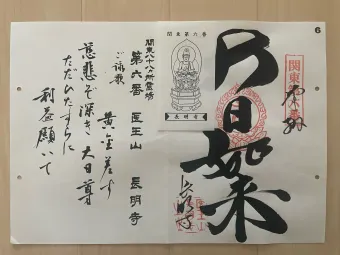 6
奉拝
大日如来
長明寺
関東第六番
長明寺
関東八十八カ所霊場
第六番 医王山 長明寺
ご詠歌
黄金差す
慈悲ぞ深き大日尊
ただひたすらに
利益願いて